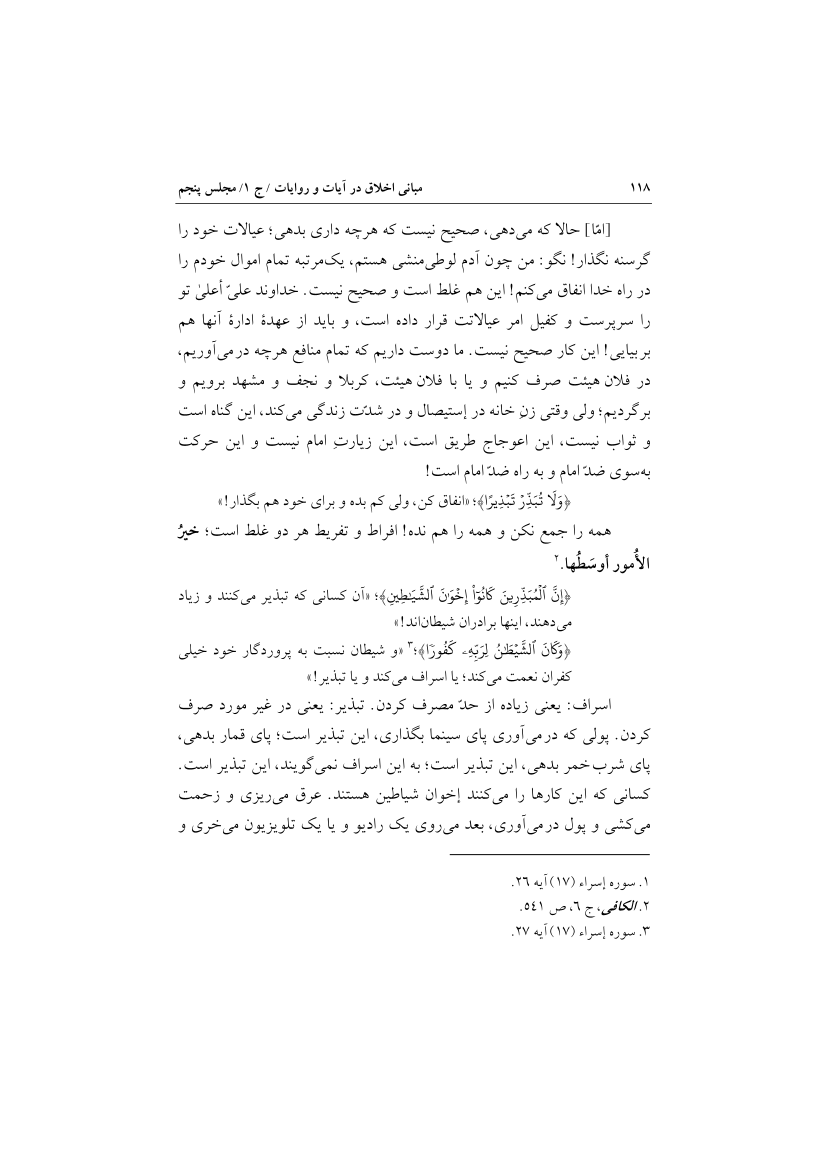 ١١٨ مبانی اخلاق در آیات و روایات / ج ١/ مجلس پنجم
[امّا] حالا که می‌دهی، صحیح نیست که هرچه داری بدهی؛ عیالات خود را
گرسنه نگذار! نگو: من چون آدم لوطی‌منشی هستم، یک‌مرتبه تمام اموال خودم را
در راه خدا انفاق می‌کنم! این هم غلط است و صحیح نیست. خداوند علیّ أعلیٰ تو
را سرپرست و کفیل امر عیالاتت قرار داده است، و باید از عهدۀ ادارۀ آنها هم
بر بیایی! این کار صحیح نیست. ما دوست داریم که تمام منافع هرچه درمی‌آوریم،
در فلان هیئت صرف کنیم و یا با فلان هیئت، کربلا و نجف و مشهد برویم و
برگردیم؛ ولی وقتی زنِ خانه در إستیصال و در شدّت زندگی می‌کند، این گناه است
و ثواب نیست، این اعوجاج طریق است، این زیارتِ امام نیست و این حرکت
به‌سوی ضدّ امام و به راه ضدّ امام است!
﴿وَلَا تُبَذِّرۡ تَبۡذِيرًا﴾؛ «انفاق کن، ولی کم بده و برای خود هم بگذار!»
همه را جمع نکن و همه را هم نده! افراط و تفریط هر دو غلط است؛ خیرُ
الأُمور أوسَطُها.٢
﴿إِنَّ ٱلۡمُبَذِّرِينَ كَانُوٓاْ إِخۡوَٰنَ ٱلشَّيَٰطِينِ﴾؛ «آن کسانی که تبذیر می‌کنند و زیاد
می‌دهند، اینها برادران شیطان‌اند!»
﴿وَكَانَ ٱلشَّيۡطَٰنُ لِرَبِّهِۦ كَفُورًا﴾؛٣ «و شیطان نسبت به پروردگار خود خیلی
کفران نعمت می‌کند؛ یا اسراف می‌کند و یا تبذیر!»
اسراف: یعنی زیاده از حدّ مصرف کردن. تبذیر: یعنی در غیر مورد صرف
کردن. پولی که درمی‌آوری پای سینما بگذاری، این تبذیر است؛ پای قمار بدهی،
پای شرب‌خمر بدهی، این تبذیر است؛ به این اسراف نمی‌گویند، این تبذیر است.
کسانی که این کارها را می‌کنند إخوان شیاطین هستند. عرق می‌ریزی و زحمت
می‌کشی و پول درمی‌آوری، بعد می‌روی یک رادیو و یا یک تلویزیون می‌خری و
١. سوره إسراء (١٧) آیه ٢٦.
٢. الکافی، ج ٦، ص ٥٤١.
٣. سوره إسراء (١٧) آیه ٢٧.